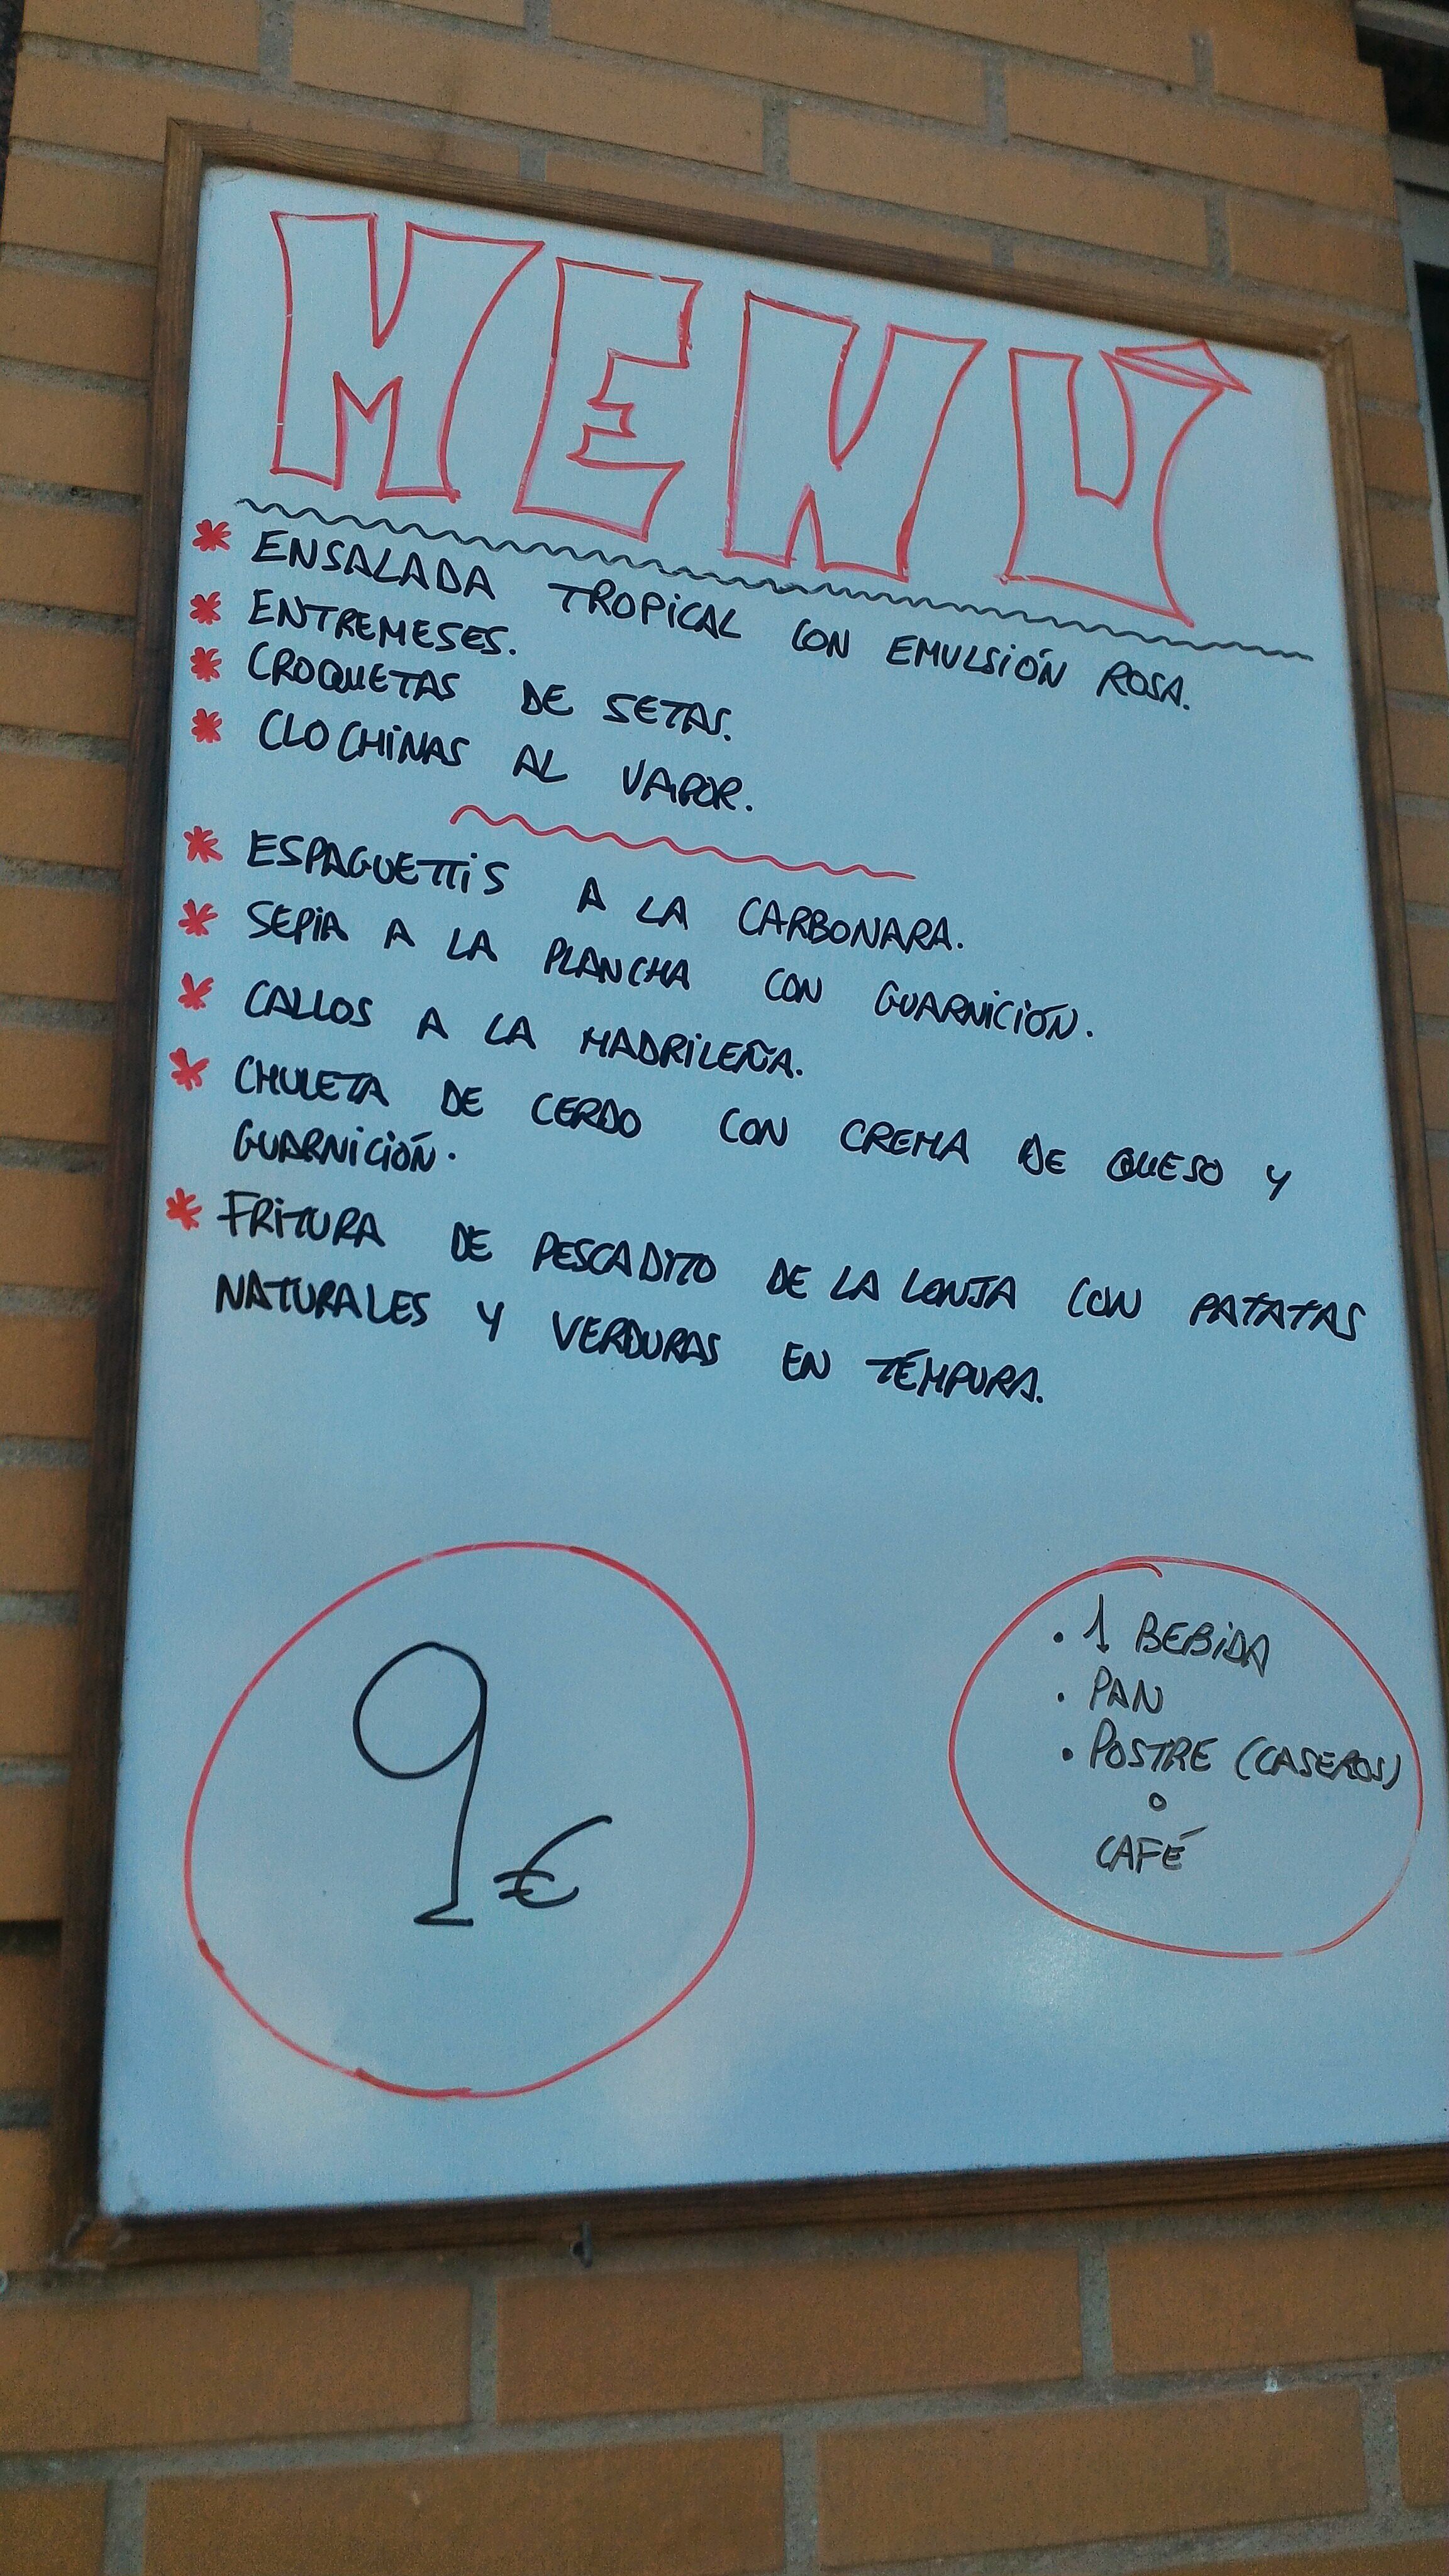 MENÚ
* ENSALADA TROPICAL CON EMULSIÓN ROSA.
* ENTREMESES.
* CROQUETAS DE SETAS.
* CLOCHINAS AL VAPOR.
* ESPAGUETTIS A LA CARBONARA.
* SEPIA A LA PLANCHA CON GUARNICIÓN.
* CALLOS A LA MADRILEÑA.
* CHULETA DE CERDO CON CREMA DE QUESO Y
GUARNICIÓN.
* FRITURA DE PESCADITO DE LA LONJA CON PATATAS
NATURALES Y VERDURAS EN TÉMPURA.
9€
· 1 BEBIDA
· PAN
· POSTRE (CASEROS)
O
CAFÉ